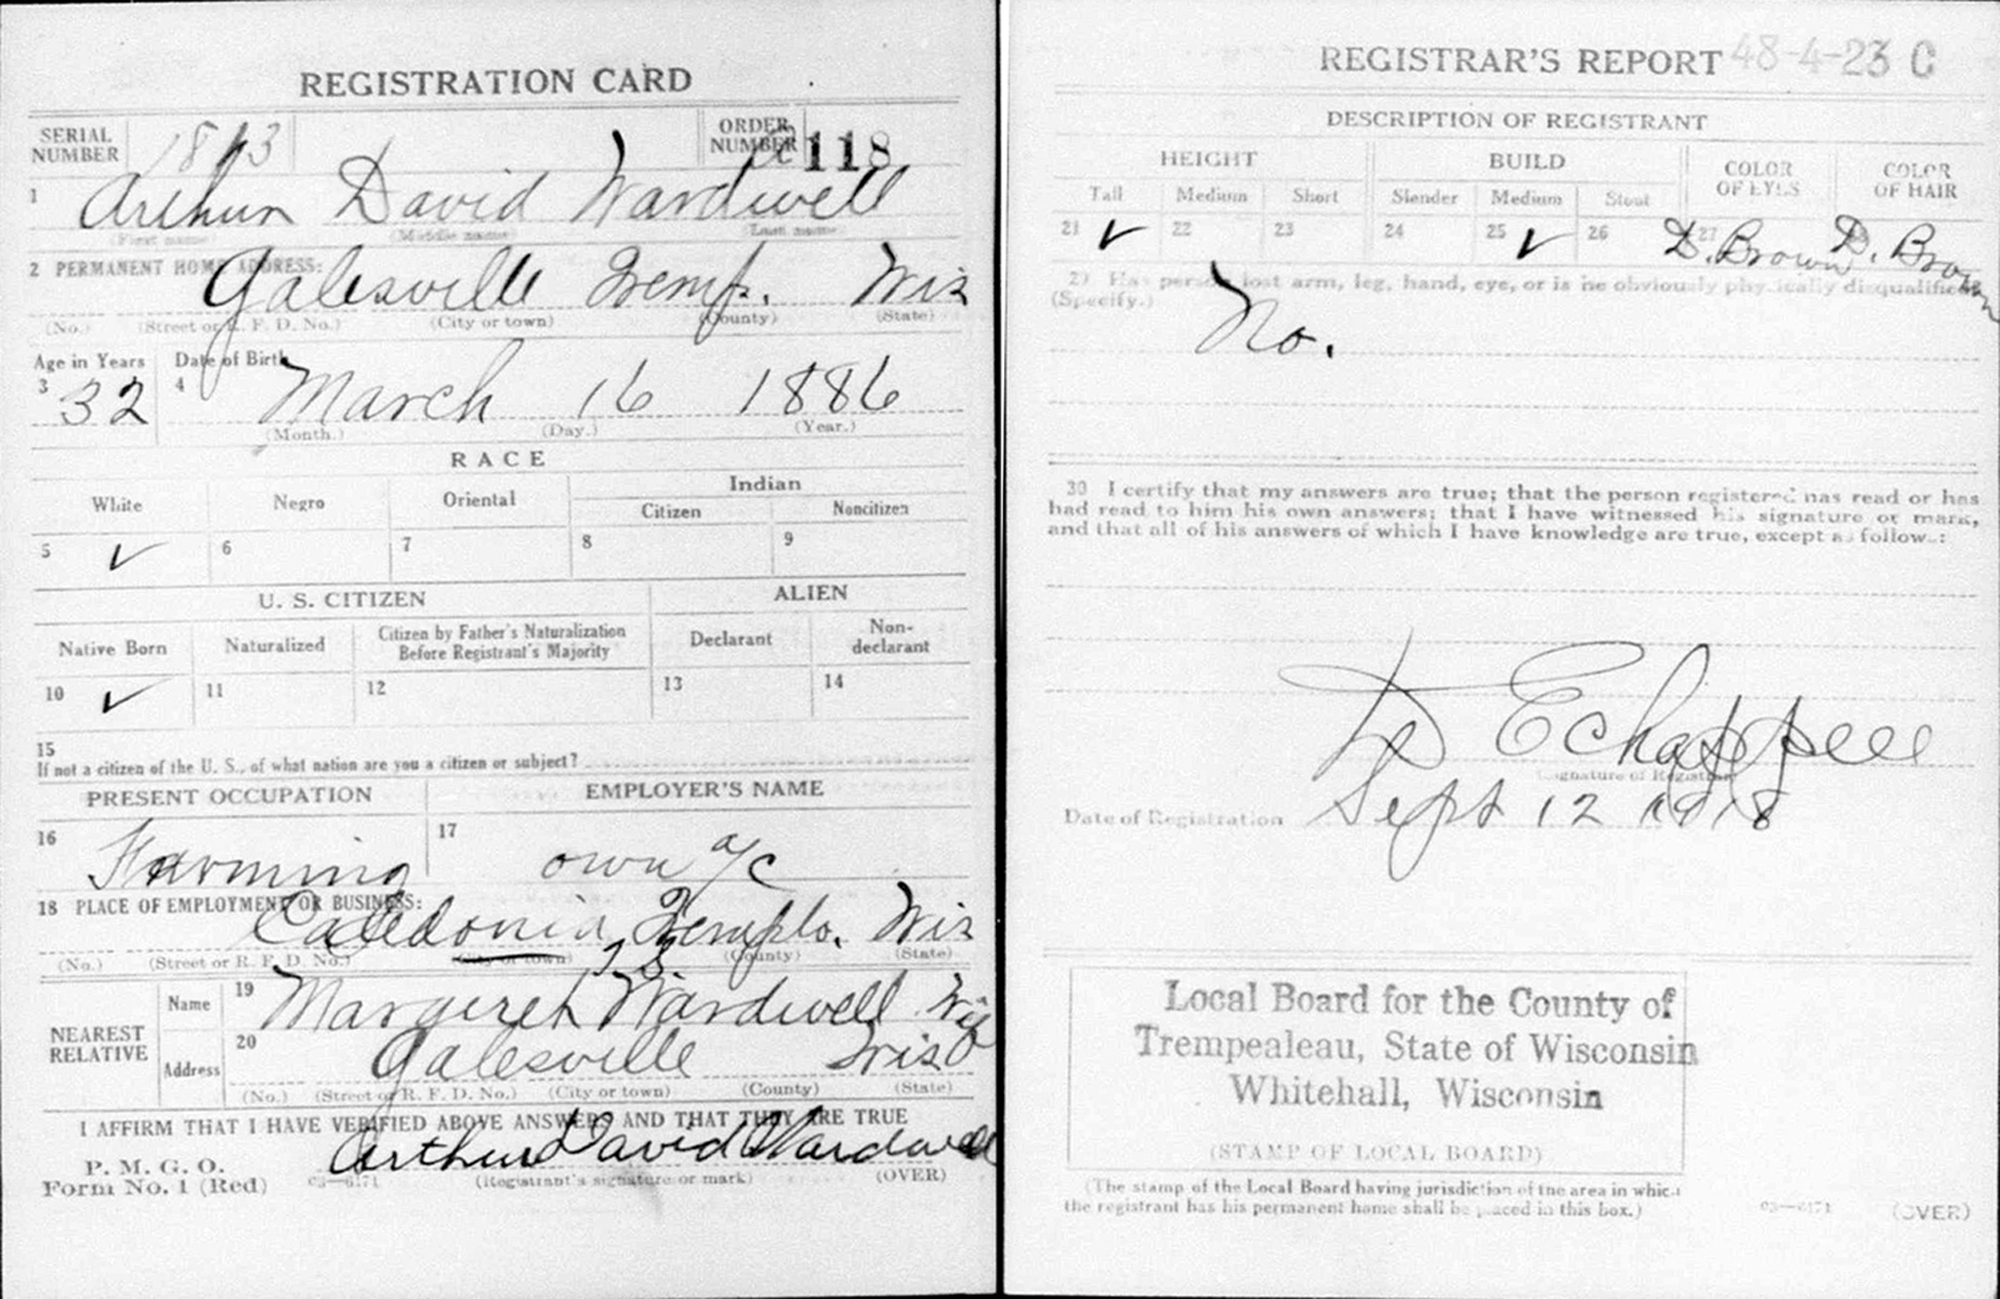 REGISTRATION CARD
SERIAL NUMBER
ORDER NUMBER 118
1 Arthur David Wardwell
(First name) (Middle name) (Last name)
2 PERMANENT HOME ADDRESS:
Galesville Tremp. Wis
(No.) (Street or R. F. D. No.) (City or town) (County) (State)
Age in Years Date of Birth
3 32 4 March 16 1886
(Month.) (Day.) (Year.)
RACE
White Negro Oriental Indian
Citizen Noncitizen
5 ✓ 6 7 8 9
U. S. CITIZEN ALIEN
Native Born Naturalized Citizen by Father's Naturalization Before Registrant's Majority Declarant Non-declarant
10 ✓ 11 12 13 14
15
If not a citizen of the U. S., of what nation are you a citizen or subject?
PRESENT OCCUPATION EMPLOYER'S NAME
16 Farming 17 own a/c
18 PLACE OF EMPLOYMENT OR BUSINESS:
Caledonia Wis
(No.) (Street or R. F. D. No.) (City or town) (County) (State)
NEAREST RELATIVE
Name 19 Margeret Wardwell Wife
Address 20 Galesville Wis
(No.) (Street or R. F. D. No.) (City or town) (County) (State)
I AFFIRM THAT I HAVE VERIFIED ABOVE ANSWERS AND THAT THEY ARE TRUE
P. M. G. O.
Form No. 1 (Red)
Arthur David Wardwell
03—6171 (Registrant's signature or mark) (OVER)
REGISTRAR'S REPORT 48-4-23 C
DESCRIPTION OF REGISTRANT
HEIGHT BUILD COLOR OF EYES COLOR OF HAIR
Tall Medium Short Slender Medium Stout
21 ✓ 22 23 24 25 ✓ 26 27 D. Brown D. Brown
29 Has person lost arm, leg, hand, eye, or is he obviously physically disqualified?
(Specify.)
No.
30 I certify that my answers are true; that the person registered has read or has
had read to him his own answers; that I have witnessed his signature or mark,
and that all of his answers of which I have knowledge are true, except as follows:
D E Chappell
(Signature of Registrar)
Date of Registration Sept 12 1918
Local Board for the County of
Trempealeau, State of Wisconsin
Whitehall, Wisconsin
(STAMP OF LOCAL BOARD)
(The stamp of the Local Board having jurisdiction of the area in which
the registrant has his permanent home shall be placed in this box.)
03—6171 (OVER)